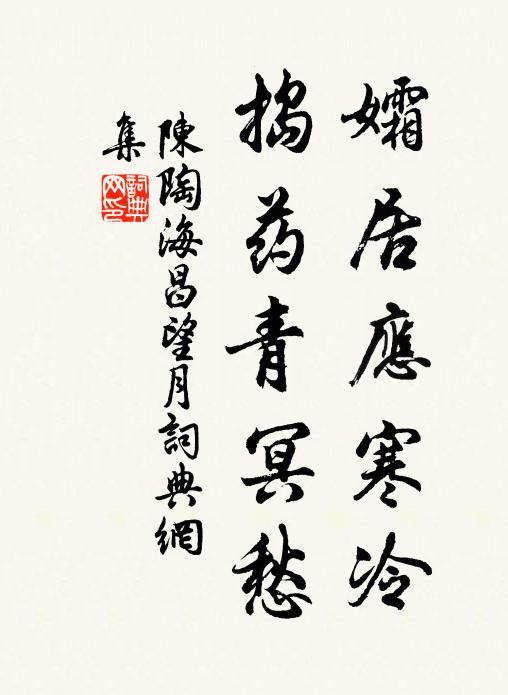 孀居應寒冷
搗药青冥愁
陳陶海昌望月詞典網
集
詞典
网印